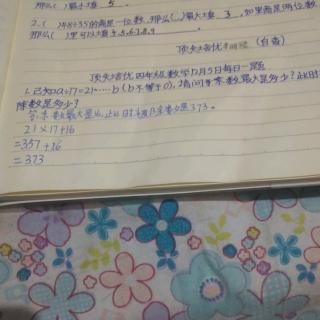 那么( )最小填 5 。
2.( )48÷35的商是一位数,那么( )最大填 3 ,如果商是两位数,
那么( )里可以填 4、5、6、7、8、9 。
顶尖培优 (自香)
顶尖培优四年级数学12月5日每日一题
1.已知a÷17=21……b(b不等于0),请问余数最大是多少?此时
除数是多少?
答:余数最大是16,此时被除数是373。
21×17+16
=357+16
=373